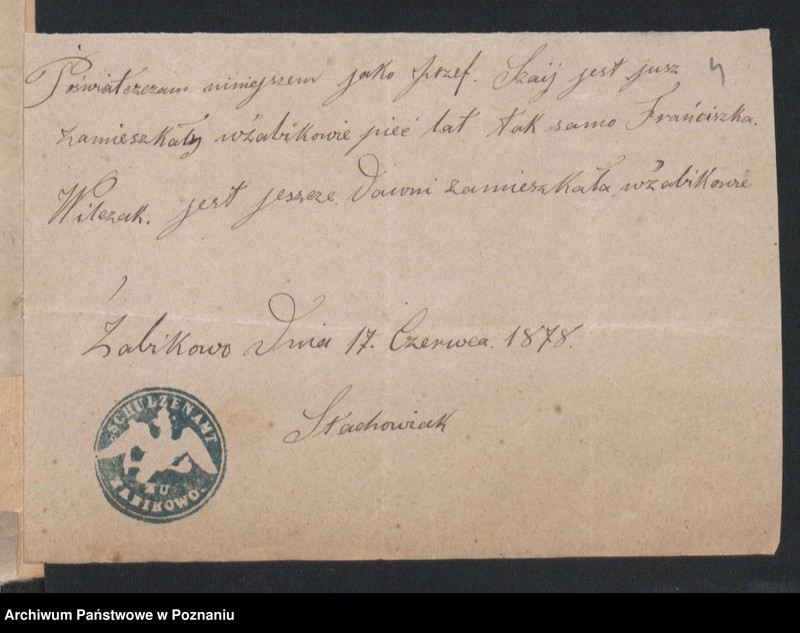 Poświatczam niniejszem jako Jozef. Szaij jest jusz
4
zamieszkały wżabikowie pieć lat tak samo Frańciszka.
Wilczak. jest jeszcze Dawni zamieszkała wżabikowie
Żabikowo Dnia 17. Czerwca. 1878.
Stachowiak
SCHULZENAMT
ZU
ZABIKOWO.
Archiwum Państwowe w Poznaniu